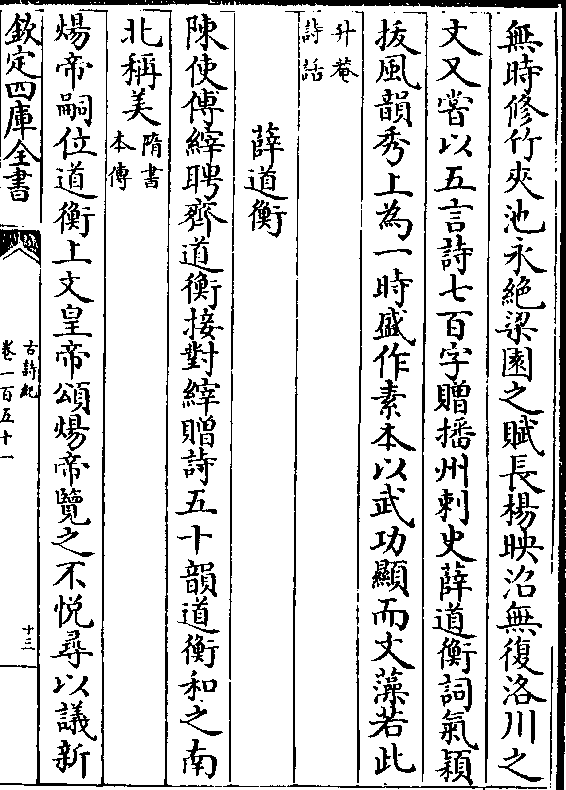 無時修竹夾池永絶梁園之賦長楊映沼無復洛川之
文又嘗以五言詩七百字贈播州刺史薛道衡詞氣穎
拔風韻秀上為一時盛作素本以武功顯而文藻若此
升菴
詩話
薛道衡
陳使傅縡聘齊道衡接對縡贈詩五十韻道衡和之南
北稱美隋書
本傳
煬帝嗣位道衡上文皇帝頌煬帝覽之不悅尋以議新
欽定四庫全書
古詩紀
卷一百五十一
十三